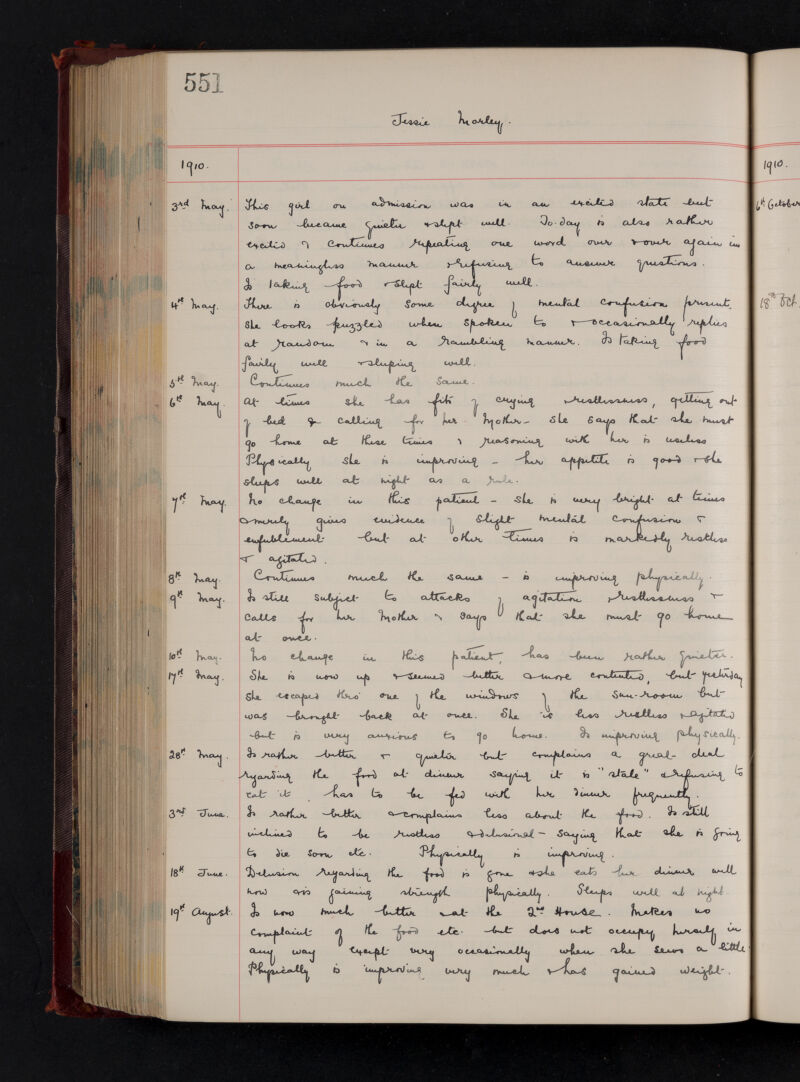 551
Jessie Morley.
1910.
3rd May. This girl on admission was in an excited state but
soon became quieter & slept well. To-day is also rather
excited & continues repeating one word over & over again in
a meaningless manner & refusing to answer questions.
Is taking food & slept fairly well.
4th May. There is obviously some degree of mental confusion present.
She looks puzzled when spoken to & occasionally replies
at random & in a rambling manner. Is taking food
fairly well & sleeping well.
5th May. Continues much the same.
6th May. At times she has fits of crying & restlessness, getting out
of bed & calling for her Mother - She says that she must
go home at these times & reasoning with her is useless
Physically she is improving - her appetite is good & she
sleeps well at night as a rule.
7th May. No change in this patient - She is very bright at times
& merely gives evidence of slight mental confusion &
enfeeblement but at other times is markedly restless
& agitated.
8th May. Continues much the same - is improving physically.
9th May. Is still subject to attacks of agitation & restlessness &
calls for her Mother & says that she must go home
at once.
10th May. No change in this patient, has been rather quieter.
17th May. She is now up & seemed better & more contented, but yesterday
she escaped thro' one of the windows of the Sun-room but
was brought back at once. She is less restless & agitated
but is very anxious to go home. Is improving physically.
28th May. Is rather better & quieter but complains a great deal
regarding the food at dinner saying it is "stale" & refusing to
eat it, has to be fed with her dinner frequently.
3rd June. Is rather better & complains less about the food. Is still
inclined to be restless & delusional - saying that she is going
to die soon etc. Physically is improving.
18th June. Delusion regarding the food is gone & she eats her dinner well
now & is gaining strength physically. Sleeps well at night.
19th August. Is now much better & at the 2nd House. Makes no
complaint of the food etc. but does not occupy herself in
any way except very occasionally when she sews a little
Physically is improving very much & has gained weight.
1910.
6th October
18th Oct.